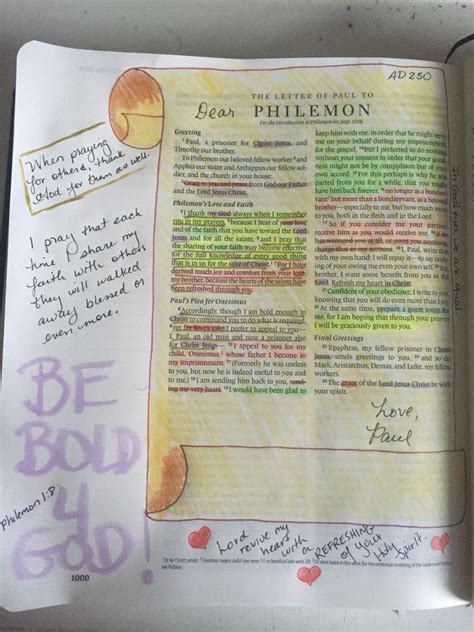 AD 250
THE LETTER OF PAUL TO
Dear PHILEMON
For the introduction to Philemon see page
When praying
for others, thank
God for them as well.
I pray that each
time I share my
faith with others
they will walked
away blessed or
even more.
BE
BOLD
4
GOD!
Philemon 1:8
Greeting
1 Paul, a prisoner for Christ Jesus, and
Timothy our brother,
To Philemon our beloved fellow worker 2 and
Apphia our sister and Archippus our fellow sol-
dier, and the church in your house:
3 Grace to you and peace from God our Father
and the Lord Jesus Christ.
Philemon's Love and Faith
4 I thank my God always when I remember
you in my prayers, 5 because I hear of your love
and of the faith that you have toward the Lord
Jesus and for all the saints, 6 and I pray that
the sharing of your faith may become effective
for the full knowledge of every good thing
that is in us for the sake of Christ. 7 For I have
derived much joy and comfort from your love,
my brother, because the hearts of the saints have
been refreshed through you.
Paul's Plea for Onesimus
8 Accordingly, though I am bold enough in
Christ to command you to do what is required,
9 yet for love's sake I prefer to appeal to you—
I, Paul, an old man and now a prisoner also
for Christ Jesus— 10 I appeal to you for my
child, Onesimus, whose father I became in
my imprisonment. 11 (Formerly he was useless
to you, but now he is indeed useful to you and
to me.) 12 I am sending him back to you, send-
ing my very heart. 13 I would have been glad to
keep him with me, in order that he might serve
me on your behalf during my imprisonment
for the gospel, 14 but I preferred to do nothing
without your consent in order that your good-
ness might not be by compulsion but of your
own accord. 15 For this perhaps is why he was
parted from you for a while, that you might
have him back forever, 16 no longer as a bondser-
vant but more than a bondservant, as a beloved
brother—especially to me, but how much more
to you, both in the flesh and in the Lord.
17 So if you consider me your partner,
receive him as you would receive me. 18 If he
has wronged you at all, or owes you anything,
charge that to my account. 19 I, Paul, write this
with my own hand: I will repay it—to say noth-
ing of your owing me even your own self. 20 Yes,
brother, I want some benefit from you in the
Lord. Refresh my heart in Christ.
21 Confident of your obedience, I write to you,
knowing that you will do even more than I say.
22 At the same time, prepare a guest room for
me, for I am hoping that through your prayers
I will be graciously given to you.
Final Greetings
23 Epaphras, my fellow prisoner in Christ
Jesus, sends greetings to you, 24 and so do
Mark, Aristarchus, Demas, and Luke, my fellow
workers.
25 The grace of the Lord Jesus Christ be with
your spirit.
Love,
Paul
Lord
revive my
heart
with
a REFRESHING
of your
Holy
Spirit.
1000